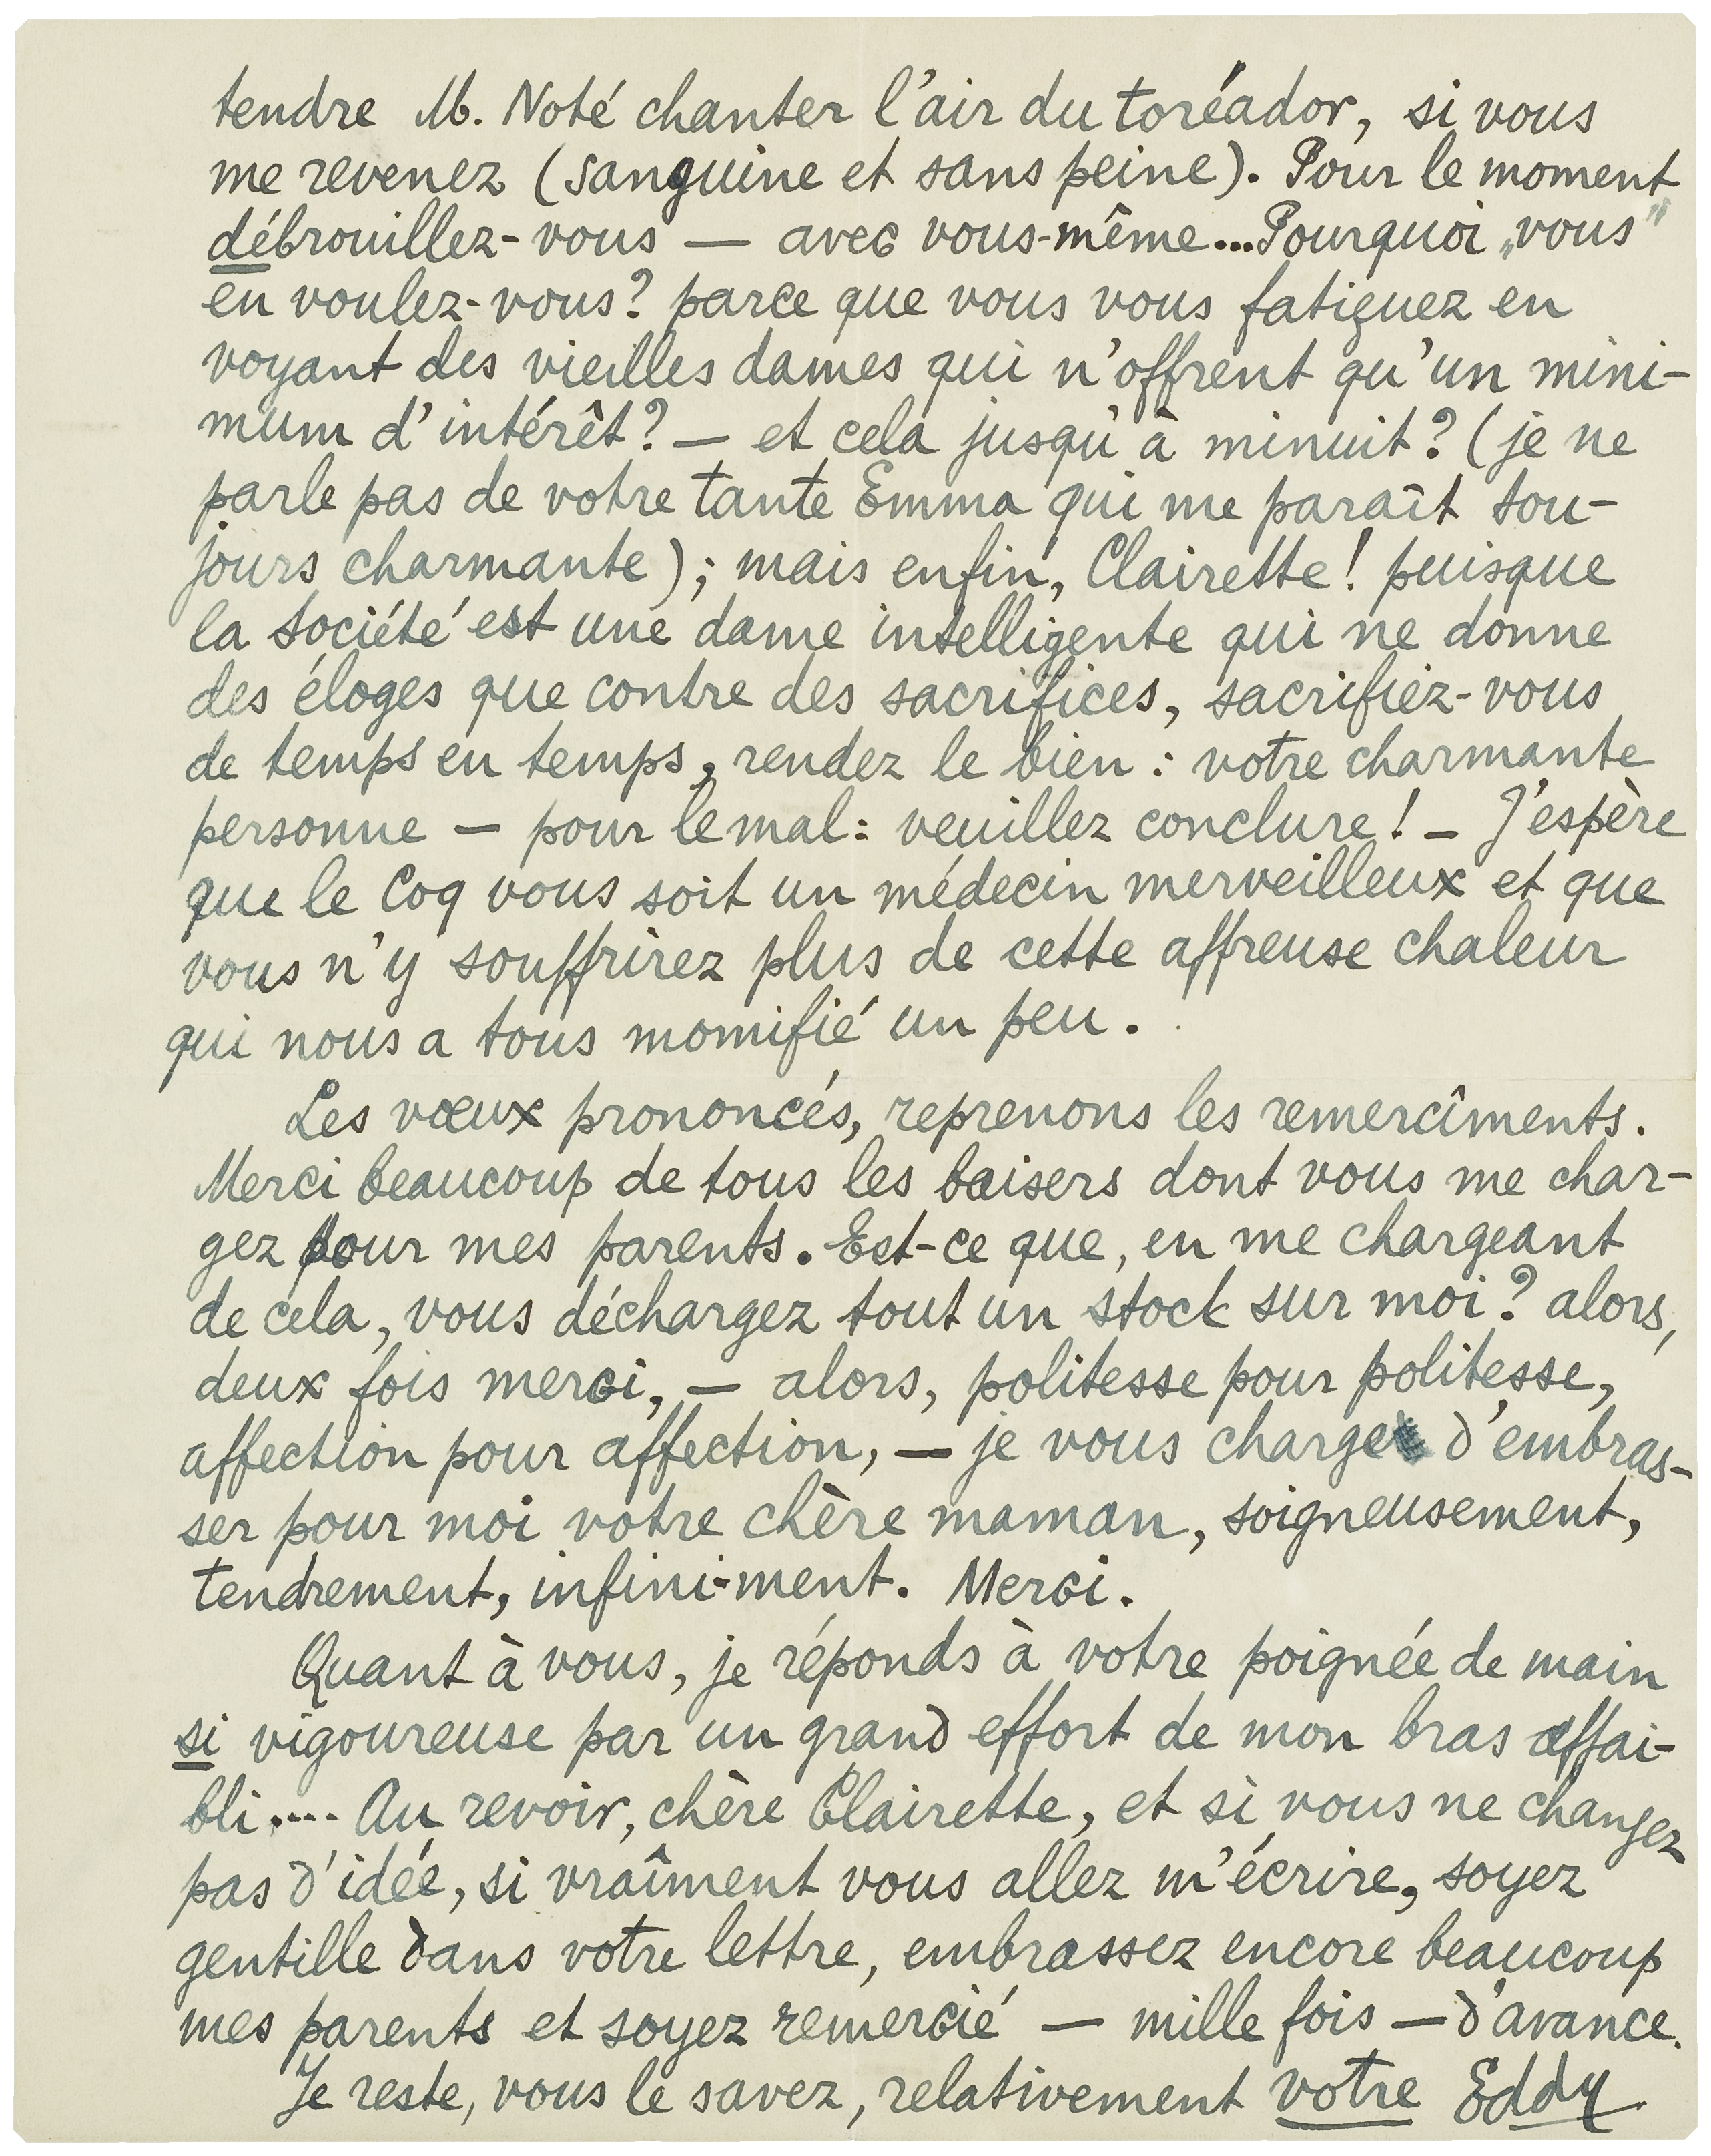 tendre M. Noté chanter l'air du toréador, si vous
me revenez (sanguine et sans peine). Pour le moment
débrouillez-vous — avec vous-même... Pourquoi „vous"
en voulez-vous? parce que vous vous fatiguez en
voyant des vieilles dames qui n'offrent qu'un mini-
mum d'intérêt? — et cela jusqu'à minuit? (je ne
parle pas de votre tante Emma qui me paraît tou-
jours charmante); mais enfin, Clairette! puisque
la société est une dame intelligente qui ne donne
des éloges que contre des sacrifices, sacrifiez-vous
de temps en temps, rendez le bien: votre charmante
personne — pour le mal: veuillez conclure! — J'espère
que le Coq vous soit un médecin merveilleux et que
vous n'y souffrirez plus de cette affreuse chaleur
qui nous a tous momifié un peu.
Les vœux prononcés, reprenons les remercîments.
Merci beaucoup de tous les baisers dont vous me char-
gez pour mes parents. Est-ce que, en me chargeant
de cela, vous déchargez tout un stock sur moi? alors,
deux fois merci, — alors, politesse pour politesse,
affection pour affection, — je vous charge d'embras-
ser pour moi votre chère maman, soigneusement,
tendrement, infini-ment. Merci.
Quant à vous, je réponds à votre poignée de main
si vigoureuse par un grand effort de mon bras affai-
bli.... Au revoir, chère Clairette, et si vous ne changez
pas d'idée, si vraîment vous allez m'écrire, soyez
gentille dans votre lettre, embrassez encore beaucoup
mes parents et soyez remercié — mille fois — d'avance.
Je reste, vous le savez, relativement votre Eddy